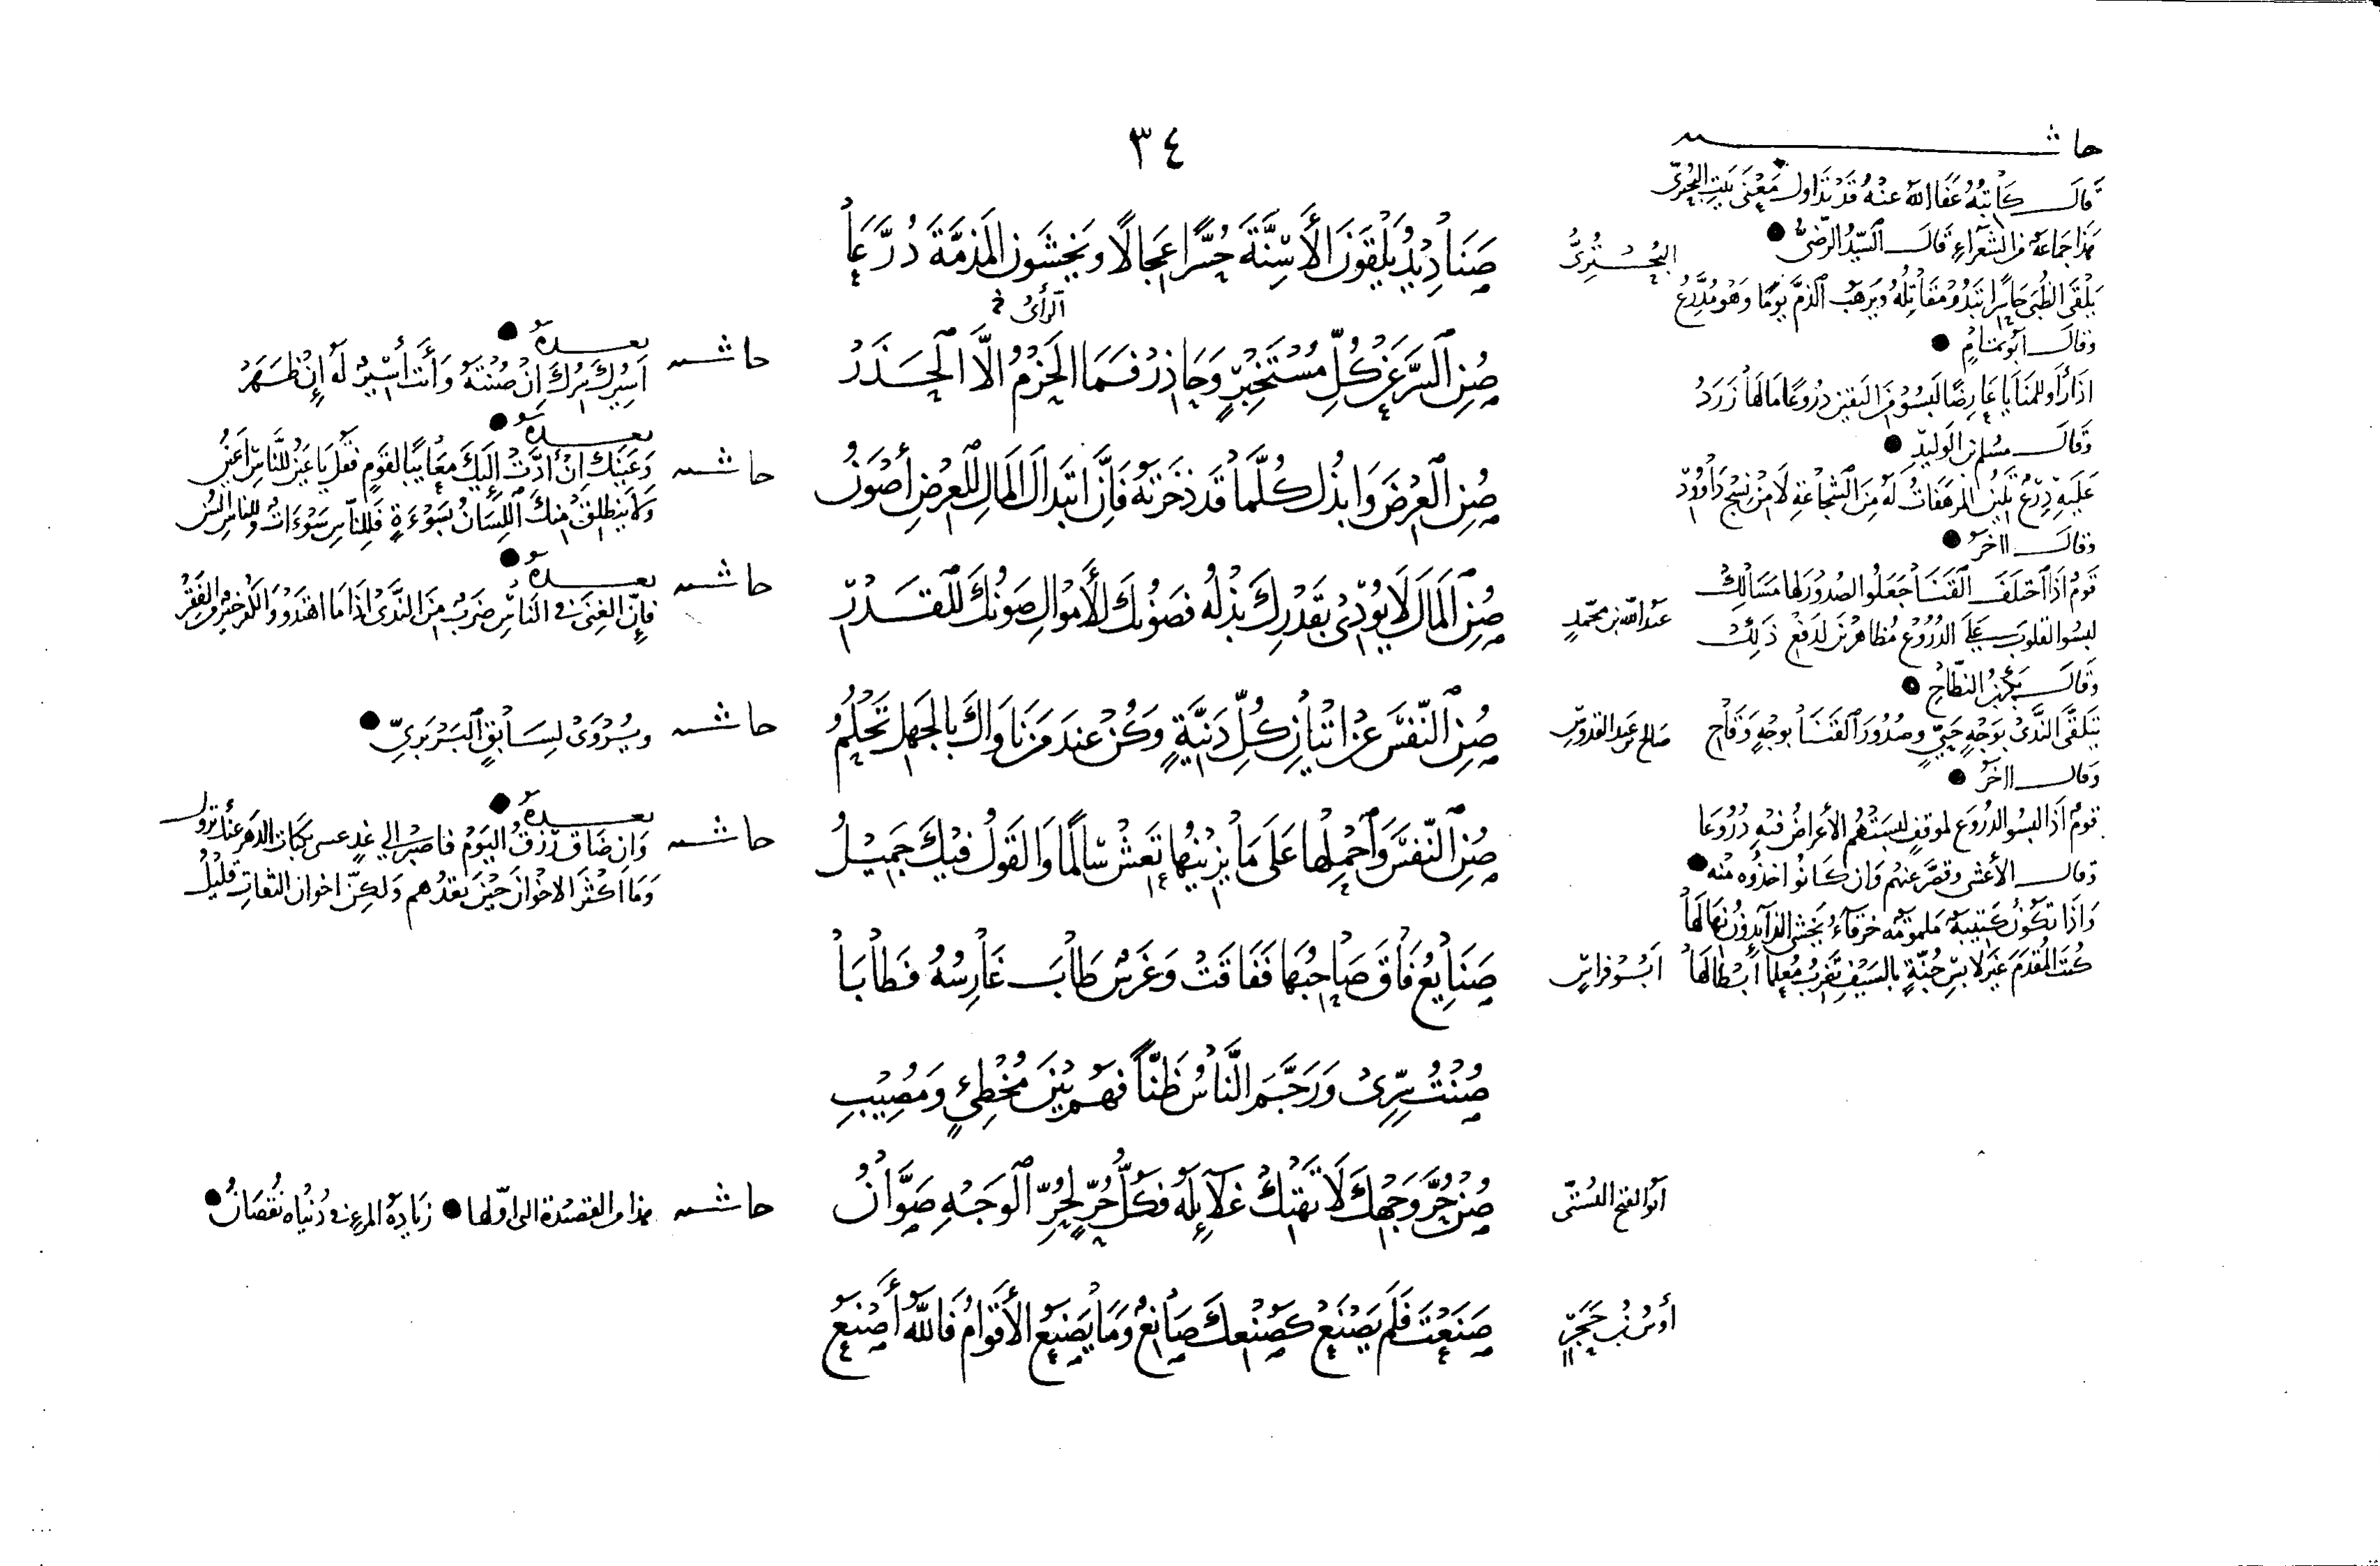 ٣٤
حاشية
قَالَ كَاتِبُهُ عَفَا اللهُ عَنْهُ قَدْ تَدَاوَلَ مَعْنَى بَيْتِ البُحْتُرِيِّ
هَذَا جَمَاعَةٌ مِنَ الشُّعَرَاءِ قَالَ السَّيِّدُ الرَّضِيُّ ●
يَلْقَى الظُّبَى حَاسِرًا تَبْدُو مَقَاتِلُهُ وَيَرْهَبُ الذَّمَّ يَوْمًا وَهُوَ مُدَّرِعُ
وَقَالَ أَبُو تَمَّامٍ ●
إِذَا رَأَوْا لِلْمَنَايَا عَارِضًا لَبِسُوا مِنَ اليَقِينِ دُرُوعًا مَا لَهَا زَرَدُ
وَقَالَ مُسْلِمُ بْنُ الوَلِيدِ ●
عَلَيْهِ دِرْعٌ تَلِينُ المُرْهَفَاتُ لَهُ مِنَ الشَّجَاعَةِ لَا مِنْ نَسْجِ دَاوُودِ
وَقَالَ آخَرُ ●
قَوْمٌ إِذَا اخْتَلَفَ القَنَا جَعَلُوا الصُّدُورَ لَهَا مَسَالِكْ
لَبِسُوا القُلُوبَ عَلَى الدُّرُوعِ مُظَاهِرِينَ لِدَفْعِ ذَلِكْ
وَقَالَ بَكْرُ بْنُ النَّطَّاحِ ●
يَتَلَقَّى النَّدَى بِوَجْهٍ حَيِيٍّ وَصُدُورَ القَنَا بِوَجْهٍ وَقَاحِ
وَقَالَ آخَرُ ●
قَوْمٌ إِذَا لَبِسُوا الدُّرُوعَ لِمَوْقِفٍ لَبِسَتْهُمُ الأَعْرَاضُ فِيهِ دُرُوعَا
وَقَالَ الأَعْشَى وَقَصَّرَ عَنْهُمْ وَإِنْ كَانُوا أَخَذُوهُ مِنْهُ ●
وَإِذَا تَكُونُ كَتِيبَةٌ مَلْمُومَةٌ خَرْقَاءُ يَخْشَى الذَّائِدُونَ نِهَالَهَا
كُنْتَ المُقَدَّمَ غَيْرَ لَابِسِ جُنَّةٍ بِالسَّيْفِ تَضْرِبُ مُعْلِمًا أَبْطَالَهَا
البُحْتُرِيُّ
صَنَادِيدُ يَلْقَوْنَ الأَسِنَّةَ حُسَّرًا عِجَالًا وَيَخْشَوْنَ المَذَمَّةَ دُرَّعَا
الرَّأْيُ خ
صُنِ السِّرَّ عَنْ كُلِّ مُسْتَخْبِرٍ وَحَاذِرْ فَمَا الحَزْمُ إِلَّا الحَذَرْ
حاشية
بعده ●
أَسِيرُكَ سِرُّكَ إِنْ صُنْتَهُ وَأَنْتَ أَسِيرٌ لَهُ إِنْ ظَهَرْ
صُنِ العِرْضَ وَابْذُلْ كُلَّمَا قَدْ ذَخَرْتَهُ فَإِنَّ ابْتِذَالَ المَالِ لِلْعِرْضِ أَصْوَنُ
حاشية
بعده ●
وَعَيْنُكَ إِنْ أَدَّتْ إِلَيْكَ مَعَايِبًا لِقَوْمٍ فَقُلْ يَا عَيْنُ لِلنَّاسِ أَعْيُنُ
وَلَا يَنْطَلِقْ مِنْكَ اللِّسَانُ بِسَوْءَةٍ فَلِلنَّاسِ سَوْءَاتٌ وَلِلنَّاسِ أَلْسُنُ
عبد الله بن محمد
صُنِ المَالَ لَا يُودِي بِقَدْرِكَ بَذْلُهُ فَصَوْنُكَ لِلأَمْوَالِ صَوْنُكَ لِلْقَدْرِ
حاشية
بعده ●
فَإِنَّ الغِنَى فِي النَّاسِ ضَرْبٌ مِنَ النَّدَى إِذَا مَا اهْتَدَوْا وَالكُفْرُ خَيْرٌ مِنَ الفَقْرِ
صالح بن عبد القدوس
صُنِ النَّفْسَ عَنْ إِتْيَانِ كُلِّ دَنِيَّةٍ وَكُنْ عِنْدَ مَنْ نَاوَاكَ بِالجَهْلِ تَحْلُمُ
حاشية وَيُرْوَى لِسَابِقٍ البَرْبَرِيِّ ●
صُنِ النَّفْسَ وَاحْمِلْهَا عَلَى مَا يَزِينُهَا تَعِشْ سَالِمًا وَالقَوْلُ فِيكَ جَمِيلُ
حاشية
بعده ●
وَإِنْ ضَاقَ رِزْقُ اليَوْمِ فَاصْبِرْ إِلَى غَدٍ عَسَى نَكَبَاتُ الدَّهْرِ عَنْكَ تَزُولُ
وَمَا أَكْثَرَ الإِخْوَانَ حِينَ تَعُدُّهُمْ وَلَكِنَّ إِخْوَانَ الثِّقَاتِ قَلِيلُ
أَبُو فِرَاسٍ
صَنَائِعُ فَاقَ صَاحِبُهَا فَفَاقَتْ وَغَرْسٌ طَابَ غَارِسُهُ فَطَابَا
صُنْتُ سِرِّي وَرَجَّمَ النَّاسُ ظَنًّا فَهُمْ بَيْنَ مُخْطِئٍ وَمُصِيبِ
أبو الفتح البستي
صُنْ حُرَّ وَجْهِكَ لَا تَهْتِكْ غَلَائِلَهُ فَكُلُّ حُرٍّ لِحُرِّ الوَجْهِ صَوَّانُ
حاشية هَذَا مِنَ القَصِيدَةِ الَّتِي أَوَّلُهَا ● زِيَادَةُ المَرْءِ فِي دُنْيَاهُ نُقْصَانُ ●
أَوْسُ بْنُ حَجَرٍ
صَنَعْتَ فَلَمْ يَصْنَعْ كَصُنْعِكَ صَانِعٌ وَمَا يَصْنَعِ الأَقْوَامُ فَاللهُ أَصْنَعُ